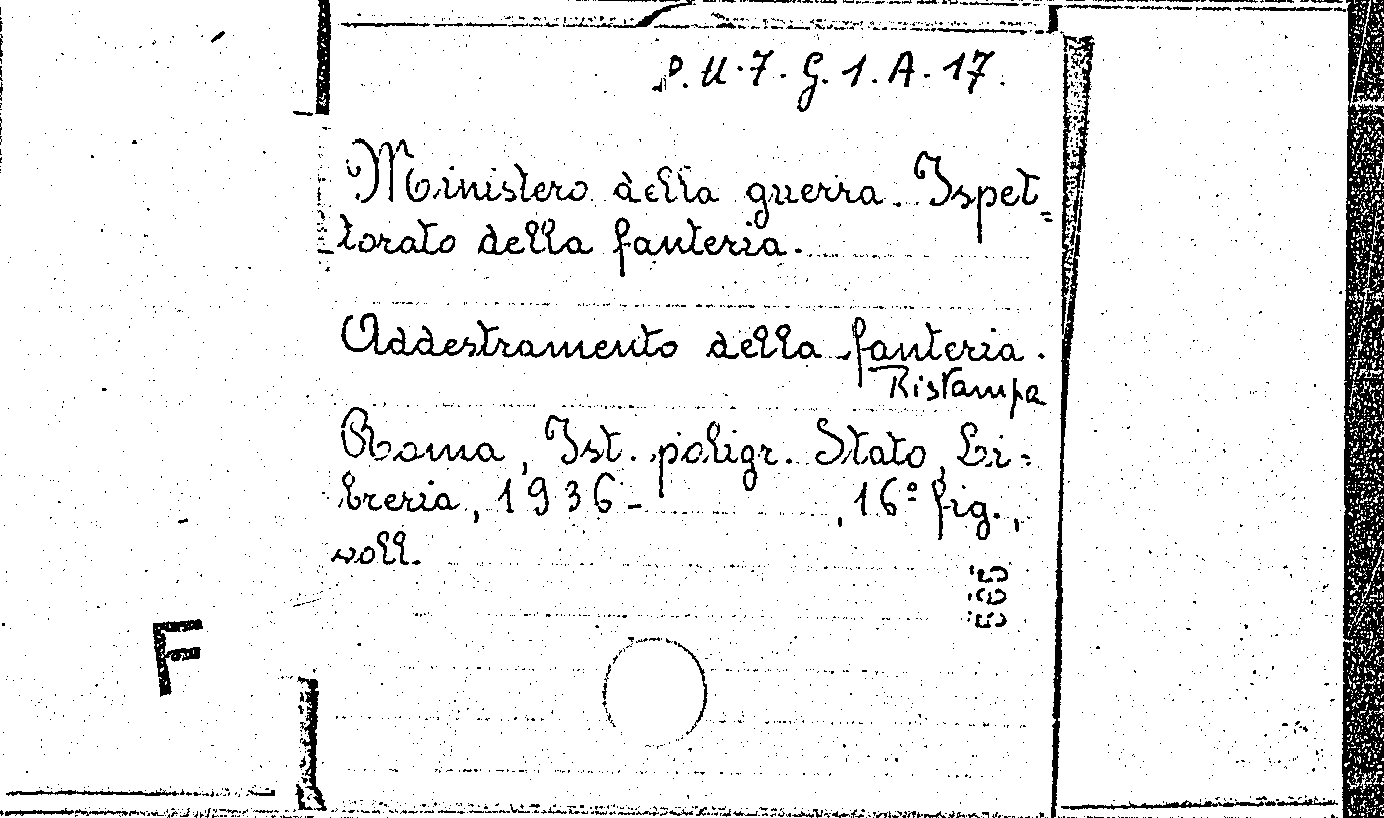 P.U.7.G.1.A.17.
Ministero della guerra. Ispet=
torato della fanteria.
Addestramento della fanteria.
Ristampa
Roma, Ist. poligr. Stato, Li=
breria, 1936- , 16° fig.,
voll.
F